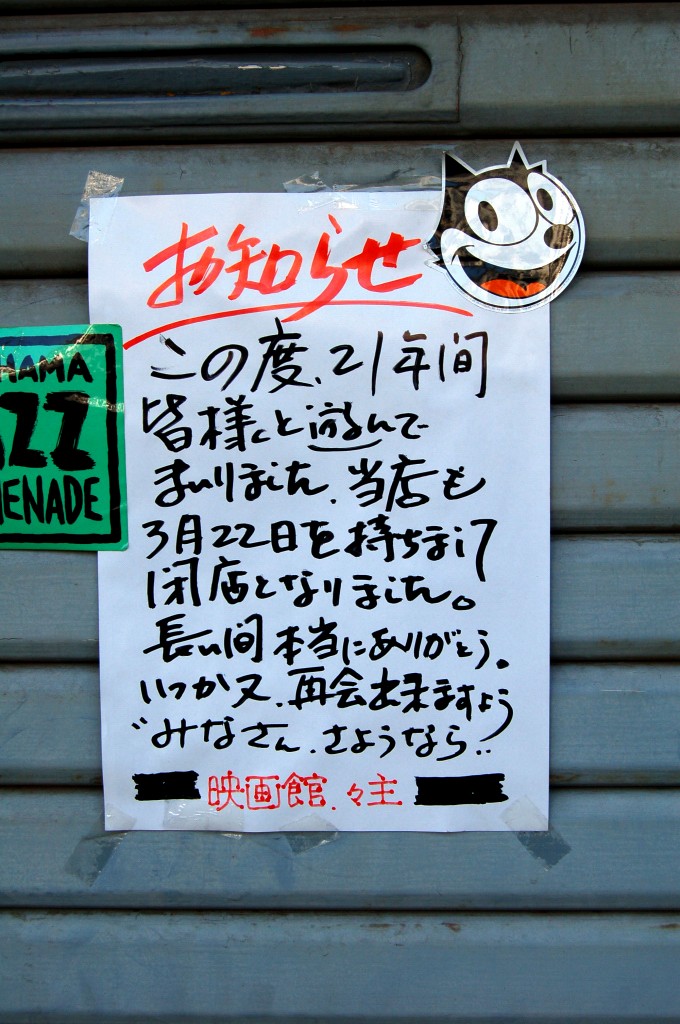 お知らせ
この度、21年間
皆様と遊んで
まいりました。当店も
3月22日を持ちまして
閉店となりました。
長い間本当にありがとう。
いつか又、再会出来ますよう
"みなさん、さようなら"
映画館、々主
HAMA
ZZ
ENADE